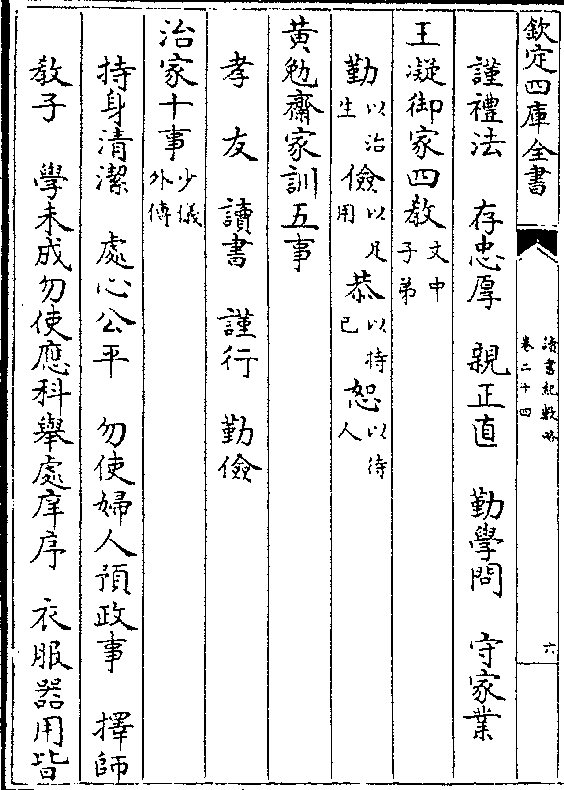 欽定四庫全書
讀書紀數略
卷二十四
六
謹禮法 存忠厚 親正直 勤學問 守家業
王凝御家四教文中子弟
勤以治生儉以足用恭以持己恕以待人
黃勉齋家訓五事
孝 友 讀書 謹行 勤儉
治家十事少儀外傳
持身清潔 處心公平 勿使婦人預政事 擇師
教子 學未成勿使應科舉處庠序 衣服器用皆